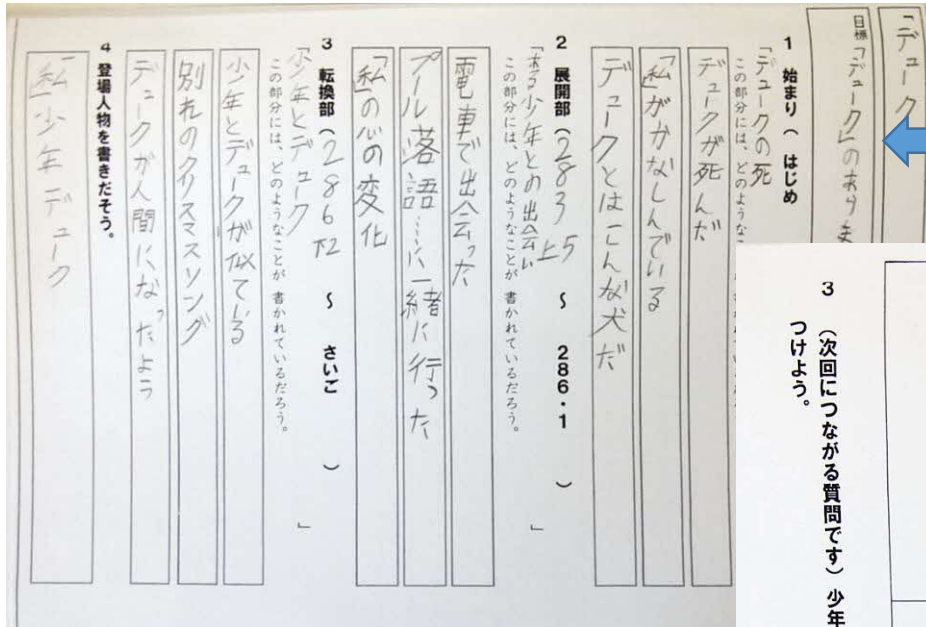 「デューク」
目標「デューク」のあらま
1 始まり( はじめ
「デュークの死
この部分には、どのようなこ
デュークが死んだ
「私」がかなしんでいる
デュークとはこんな犬だ
2 展開部(283上5 ~ 286・1 )
「ある少年との出会い 」
この部分には、どのようなことが 書かれているだろう。
電車で出会った
プール落語……に一緒に行った
「私」の心の変化
3 転換部(286下2 ~ さいご )
「少年とデューク 」
この部分には、どのようなことが 書かれているだろう。
少年とデュークが似ている
別れのクリスマスソング
デュークが人間になったよう
4 登場人物を書きだそう。
「私」少年 デューク
3 (次回につながる質問です)少年
つけよう。